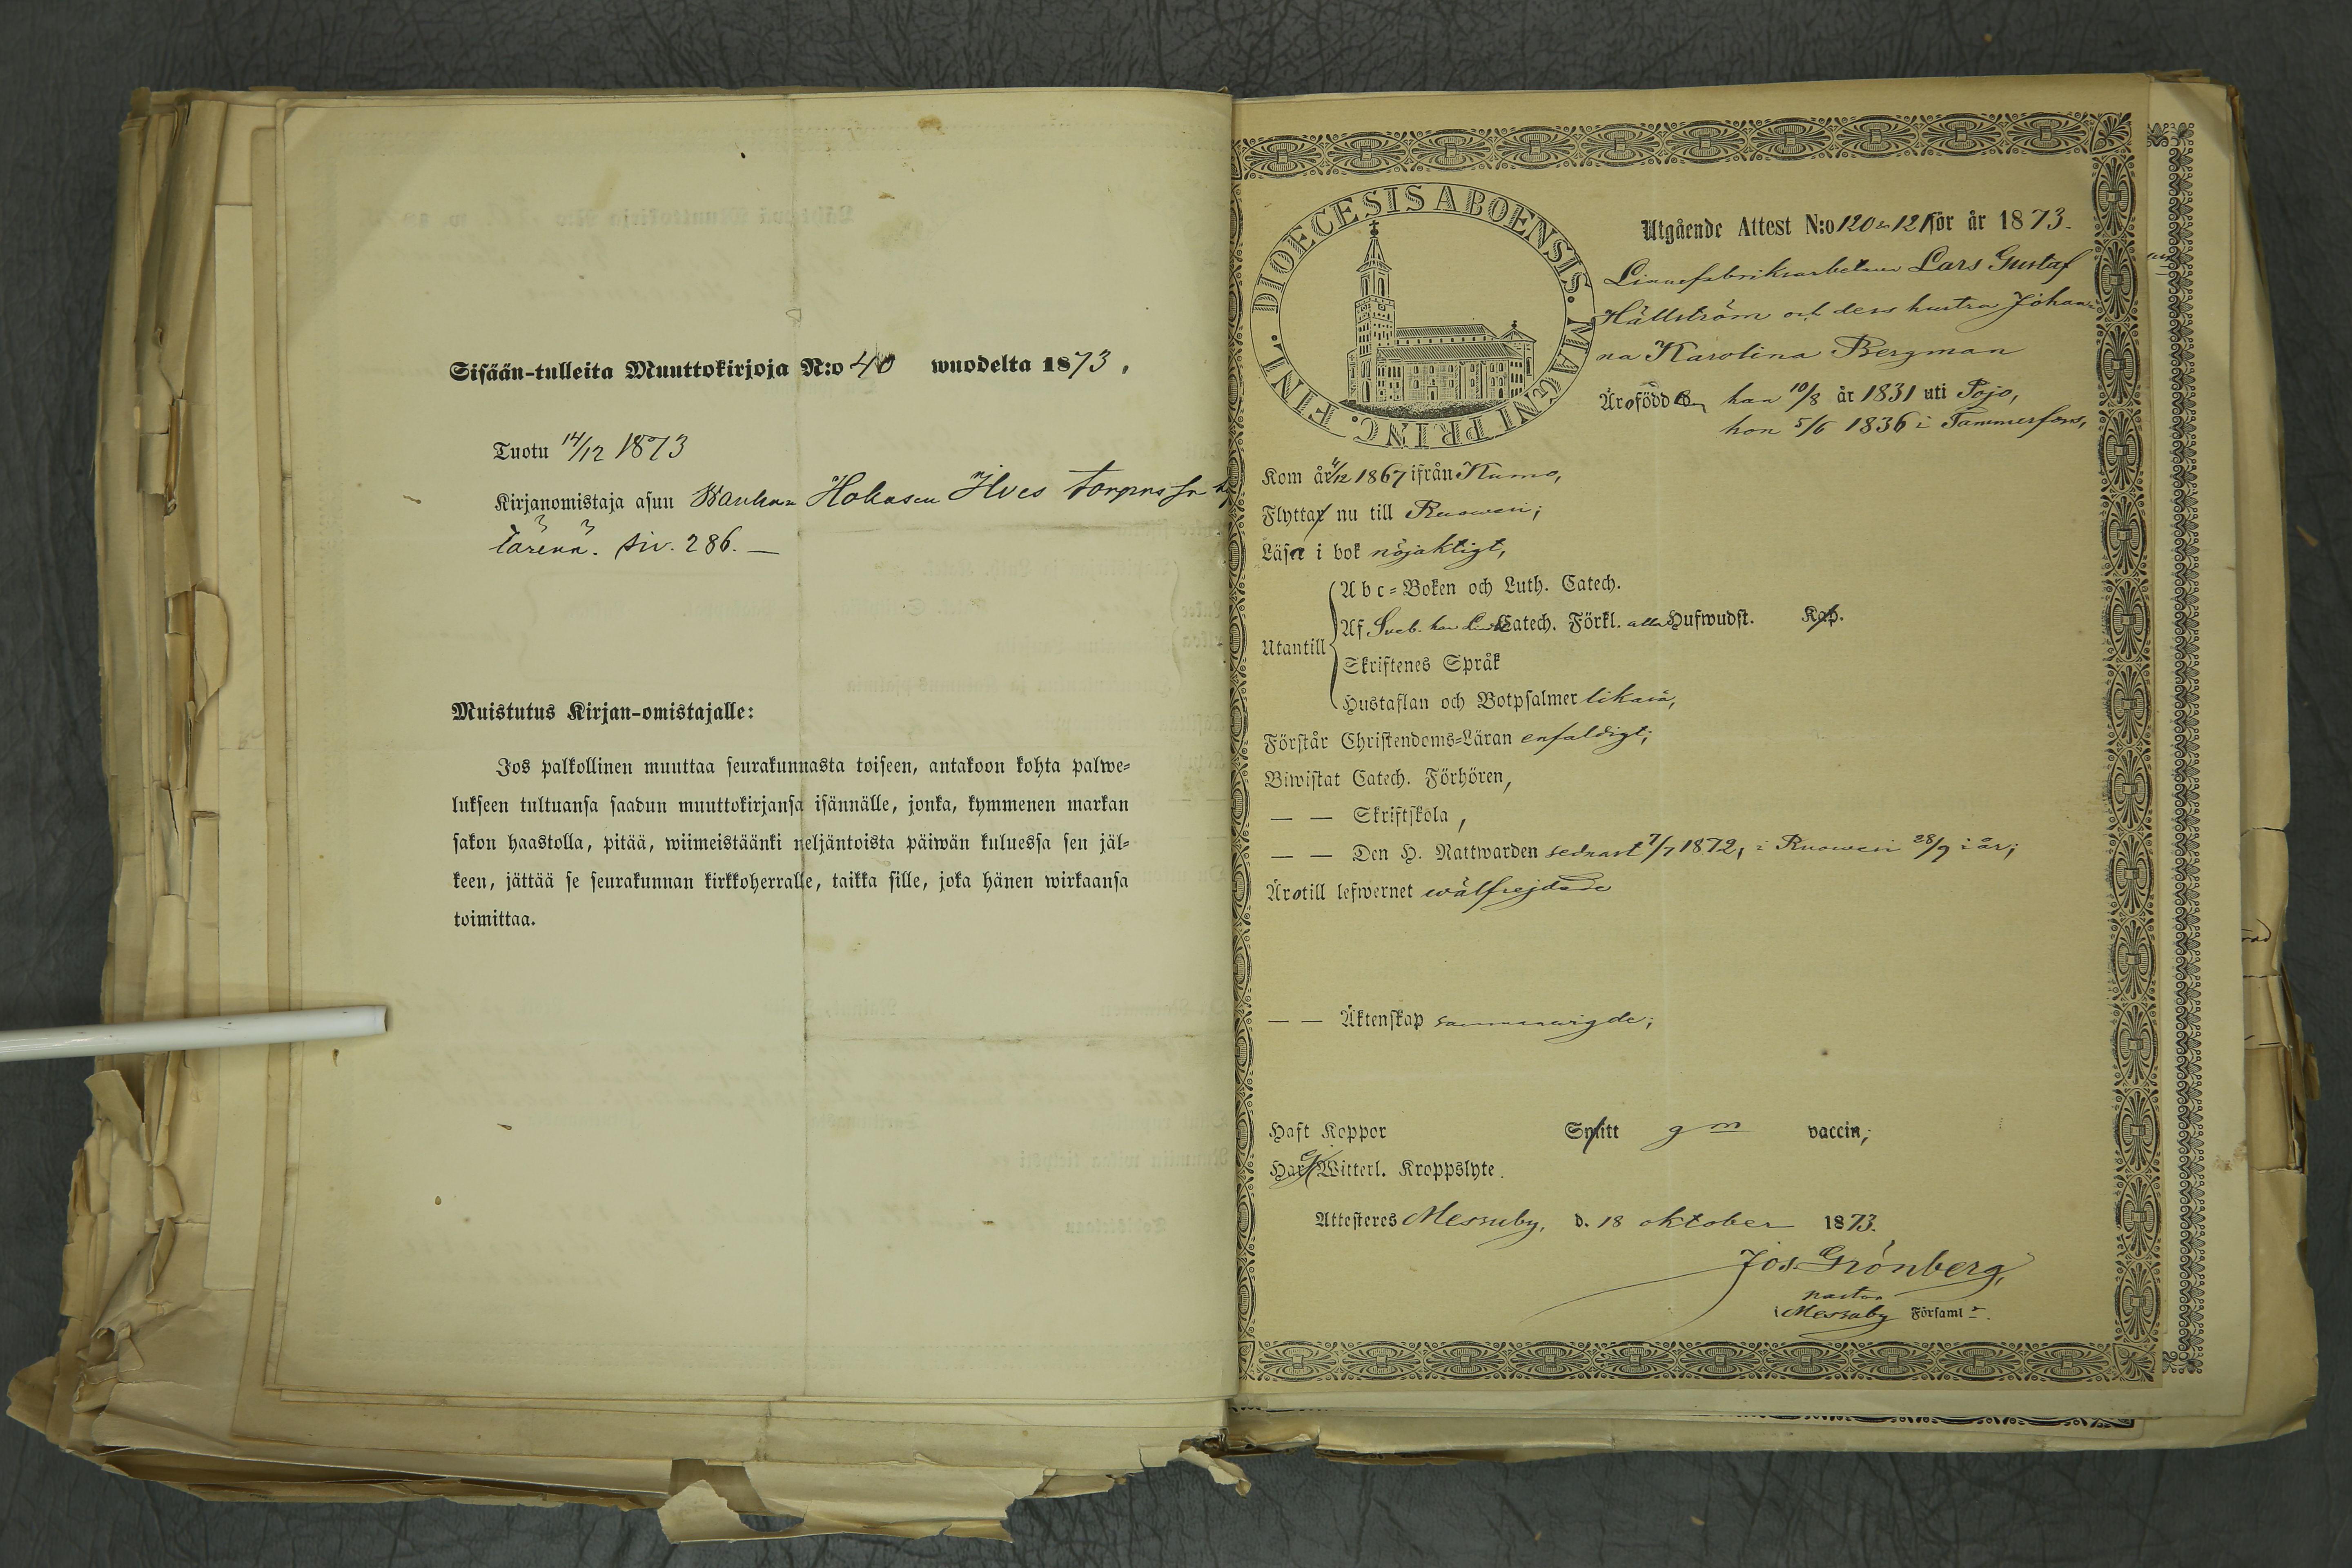 Sisään-tulleita Muuttokirjoja N:o 40 wuodelta 1873.
Tuotu 14/12 1873
Kirjanomistaja asuu Wanhan Hokasen Ilves torpas
siv. 286. —
Muistutus Kirjan-omistajalle:
Jos palkollinen muuttaa seurakunnasta toiseen, antakoon kohta palwe-
lukseen tultuansa saadun muuttokirjansa isännälle, jonka, kymmenen markan
sakon haastolla, pitää, wiimeistäänki neljäntoista päiwän kuluessa sen jäl-
keen, jättää se seurakunnan kirkkoherralle, taikka sille, joka hänen wirkaansa
toimittaa.
DIOECESIS ABOENSIS. MAGNI PRINC. FINL.
Utgående Attest N:o 120 & 121 för år 1873.
Linnefabriksarbetaren Lars Gustaf
Hällström och dess hustru Johan-
na Karolina Bergman
Äro född han 10/8 år 1831 uti Pojo,
hon 5/6 1836 i Tammerfors,
Kom år 1867 ifrån Kumo,
Flytta nu till Ruowesi;
Läsa i bok nöjaktigt,
Utantill
Abc-Boken och Luth. Catech.
Af Sveb. Catech. Förkl. alla Hufwudst. Kap.
Skriftenes Språk
Hustaflan och Botpsalmer likaså,
Förstår Christendoms-Läran enfaldigt;
Biwistat Catech. Förhören,
— — Skriftskola,
— — Den H. Nattwarden sednast 7/7 1872, i Ruowesi 28/9 i år;
Äro till lefwernet wälfrejdade
— — Äktenskap sammanvigde;
Haft Koppor Smitt gm vaccin;
Har ej Witterl. Kroppslyte.
Attesteres Messuby, d. 18 oktober 1873.
Jos. Grönberg,
pastor
i Messuby Församl.